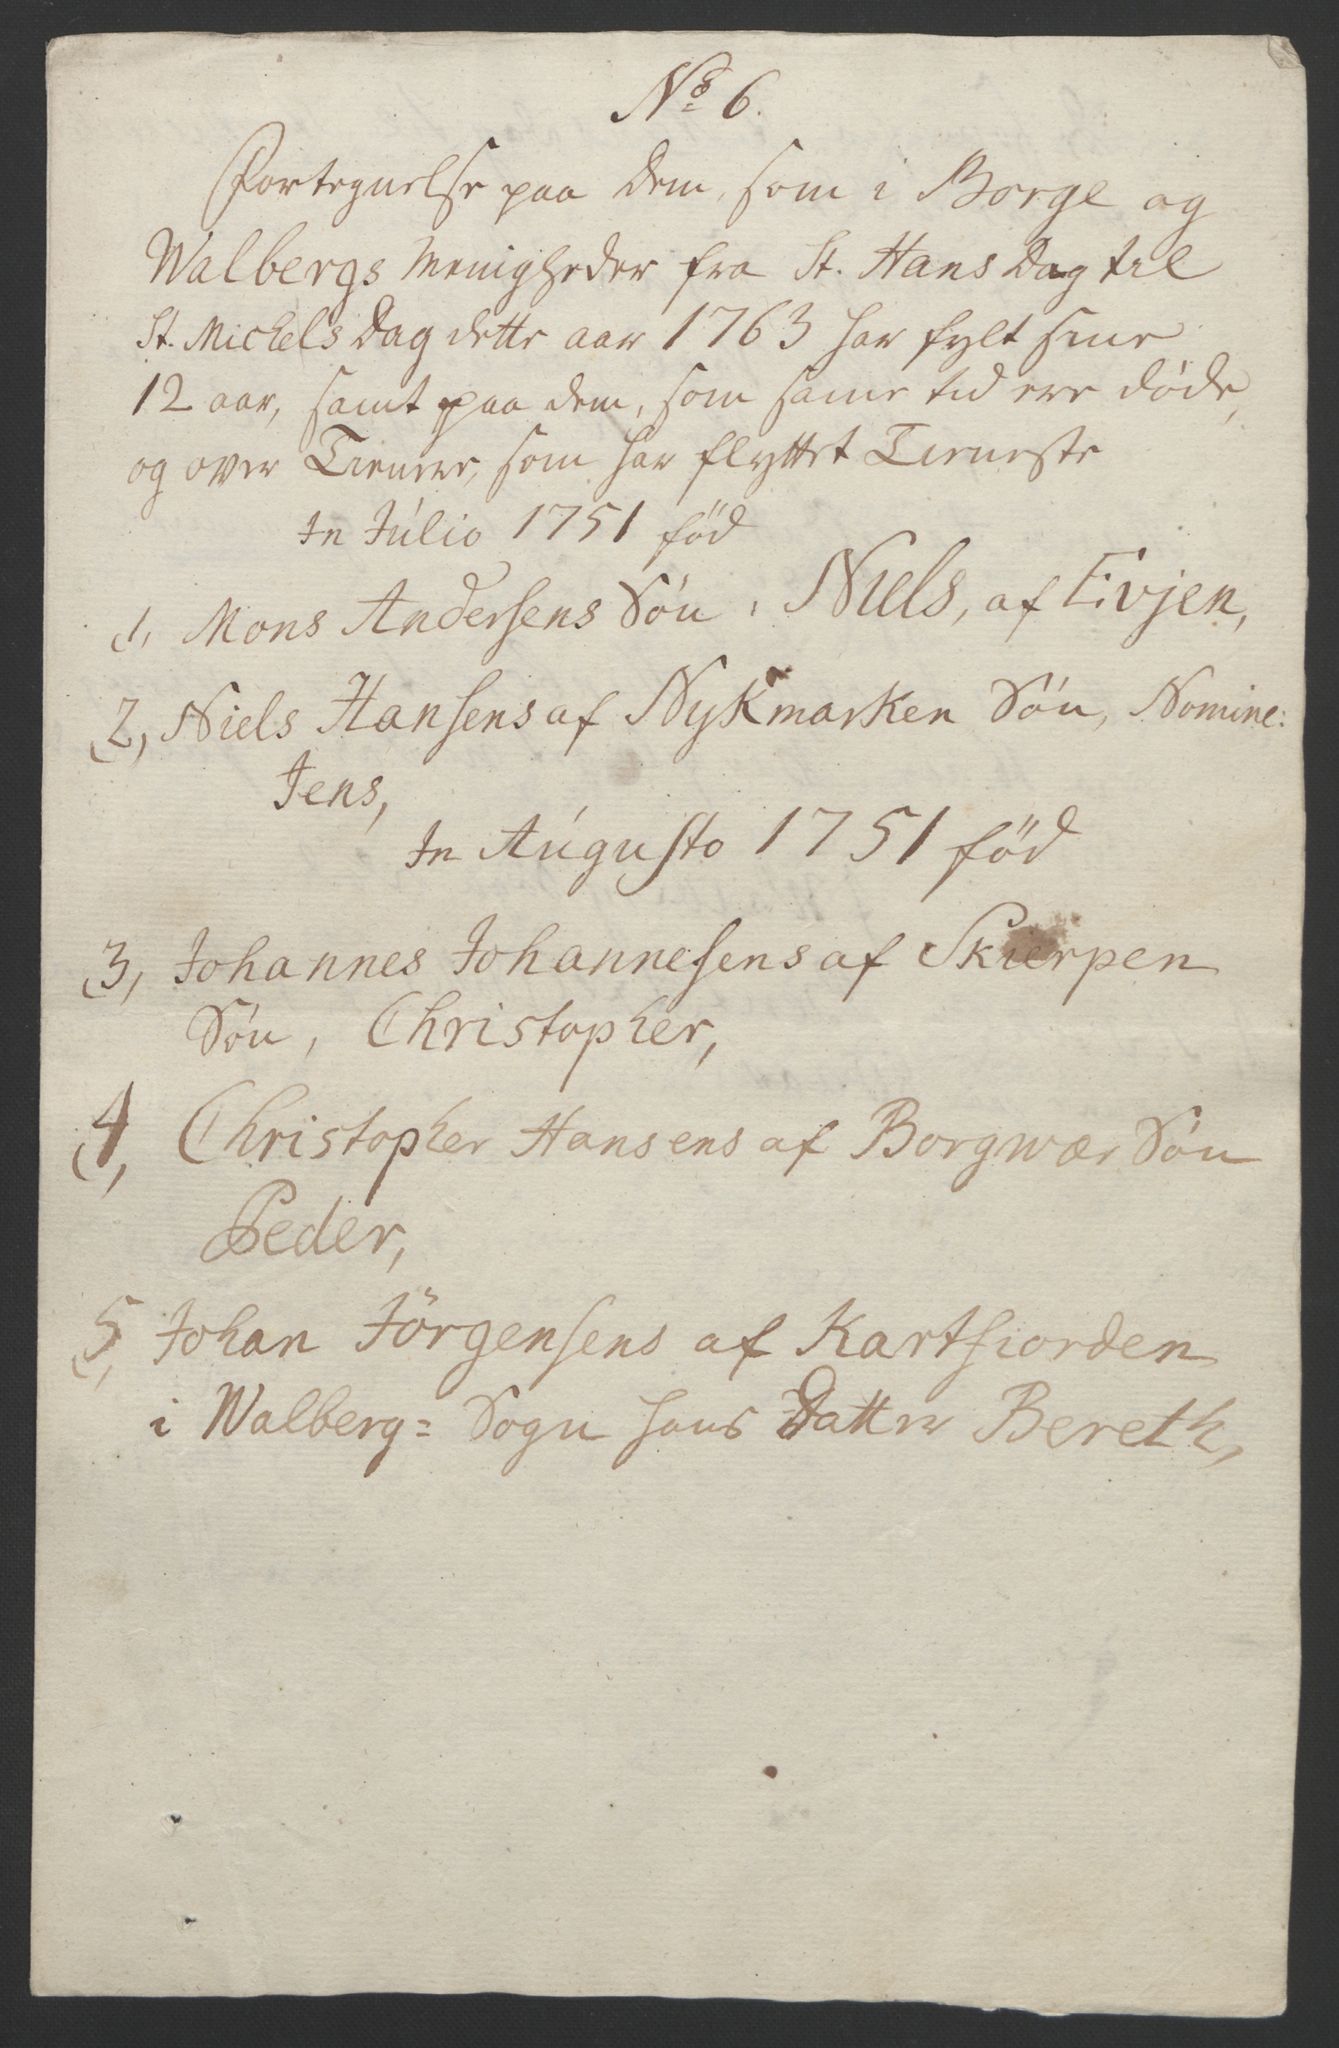 No 6.
Fortegnelse paa dem, som i Borge og
Walbergs Menigheder fra St. Hans Dag til
St. Michels Dag dette aar 1763 har fylt sine
12 aar, samt paa dem, som same tid ere døde,
og over Tienere, som har flyttet Tieneste
In Júlio 1751 fød
1, Mons Andersens Søn, Niels, af Evjen,
2, Niels Hansens af Nykmarken Søn, Nomine:
Jens,
In Aúgusto 1751 fød
3, Johannes Johannesens af Skierpen
Søn, Christopher,
4, Christopher Hansens af Borgwær Søn
Peder,
5, Johan Jörgensens af Kartfiorden
i Walberg= Sogn hans Datter Bereth,